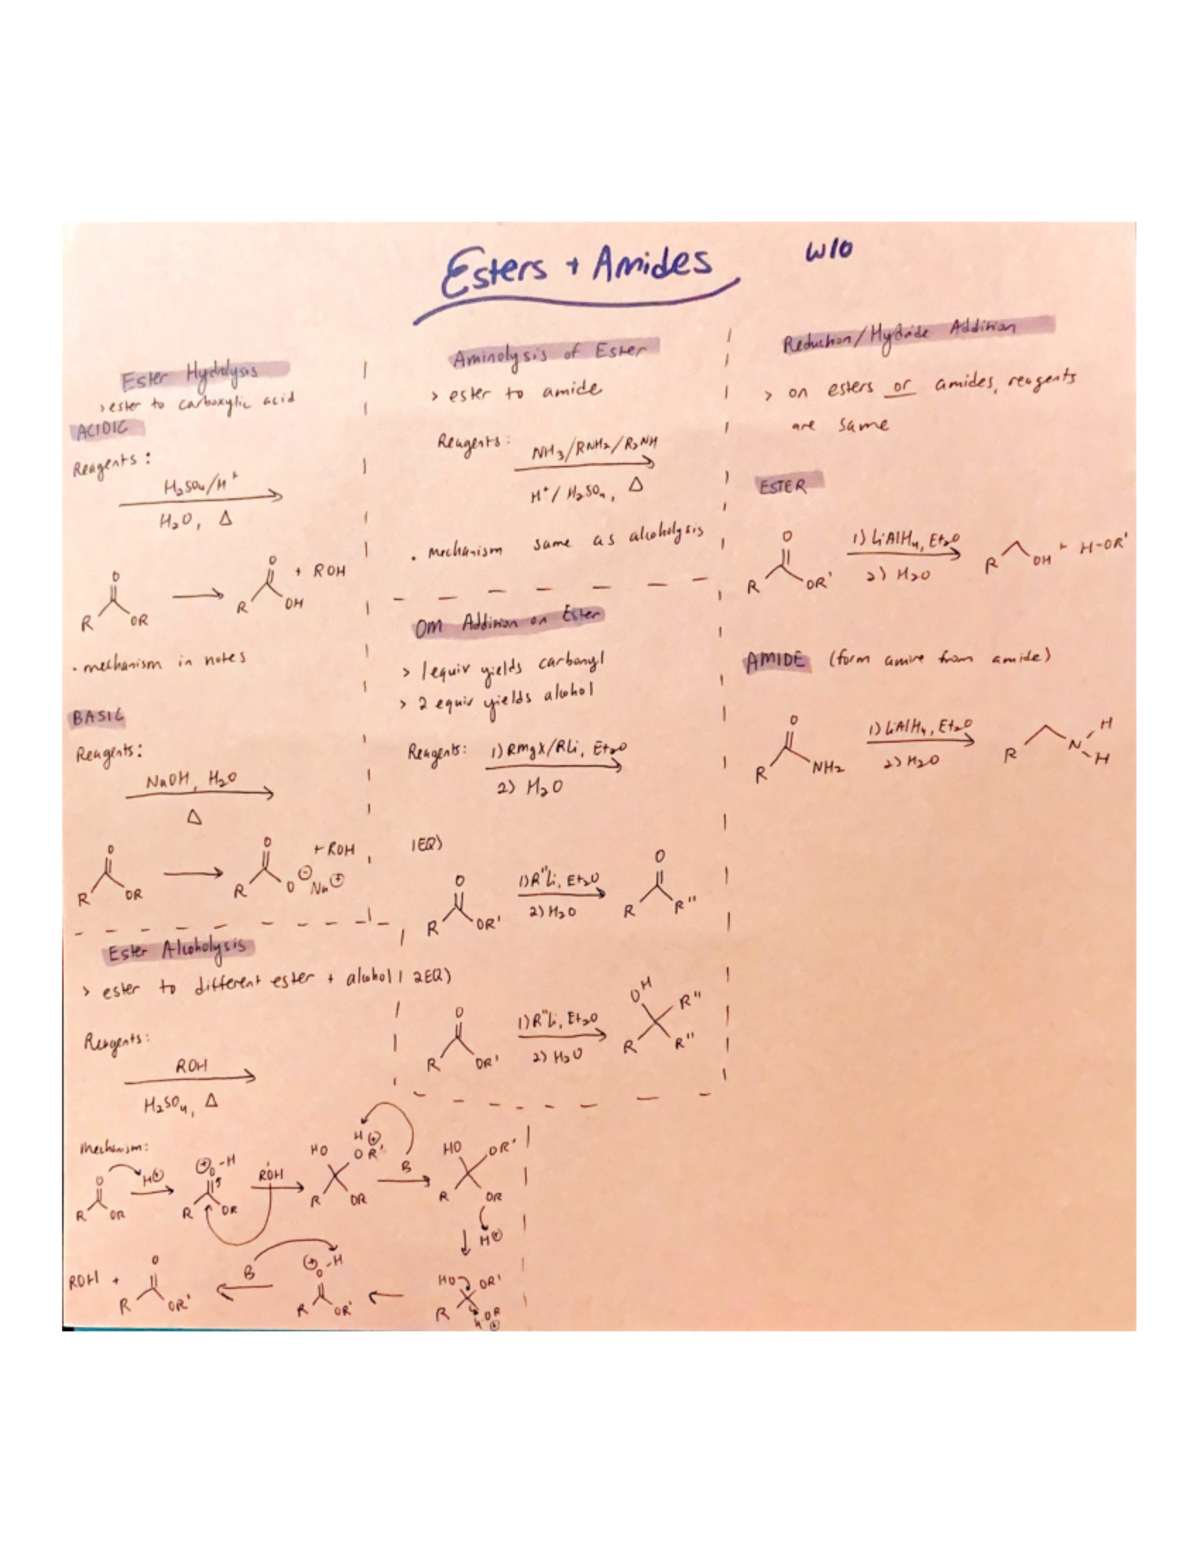 Esters + Amides
W10
Ester Hydolysis
> ester to carboxylic acid
ACIDIC
Reagents:
H2SO4/H+
H2O, Δ
O
R
OR
O
R
OH
+ ROH
• mechanism in notes
BASIC
Reagents:
NaOH, H2O
Δ
O
R
OR
O
R
O⊖ Na⊕
+ ROH
Ester Alcoholysis
> ester to different ester + alcohol
Reagents:
ROH
H2SO4, Δ
Mechanism:
O
R
OR
H⊕
⊕O-H
R
OR
R'OH
HO
H⊕
OR'
R
OR
B
HO
OR'
R
OR
H⊕
HO
OR'
R
OR
H
⊕
⊕O-H
R
OR'
B
ROH +
O
R
OR'
Aminolysis of Ester
> ester to amide
Reagents:
NH3/RNH2/R2NH
H+/H2SO4, Δ
• mechanism same as alcoholysis
OM Addition on Ester
> 1 equiv yields carbonyl
> 2 equiv yields alcohol
Reagents:
1) RMgX/RLi, Et2O
2) H2O
1EQ)
O
R
OR'
1) R"Li, Et2O
2) H2O
O
R
R"
2EQ)
O
R
OR'
1) R"Li, Et2O
2) H2O
OH
R"
R
R"
Reduction/Hydride Addition
> on esters or amides, reagents
are same
ESTER
O
R
OR'
1) LiAlH4, Et2O
2) H2O
R
OH
+ H-OR'
AMIDE (form amine from amide)
O
R
NH2
1) LiAlH4, Et2O
2) H2O
R
N
H
H